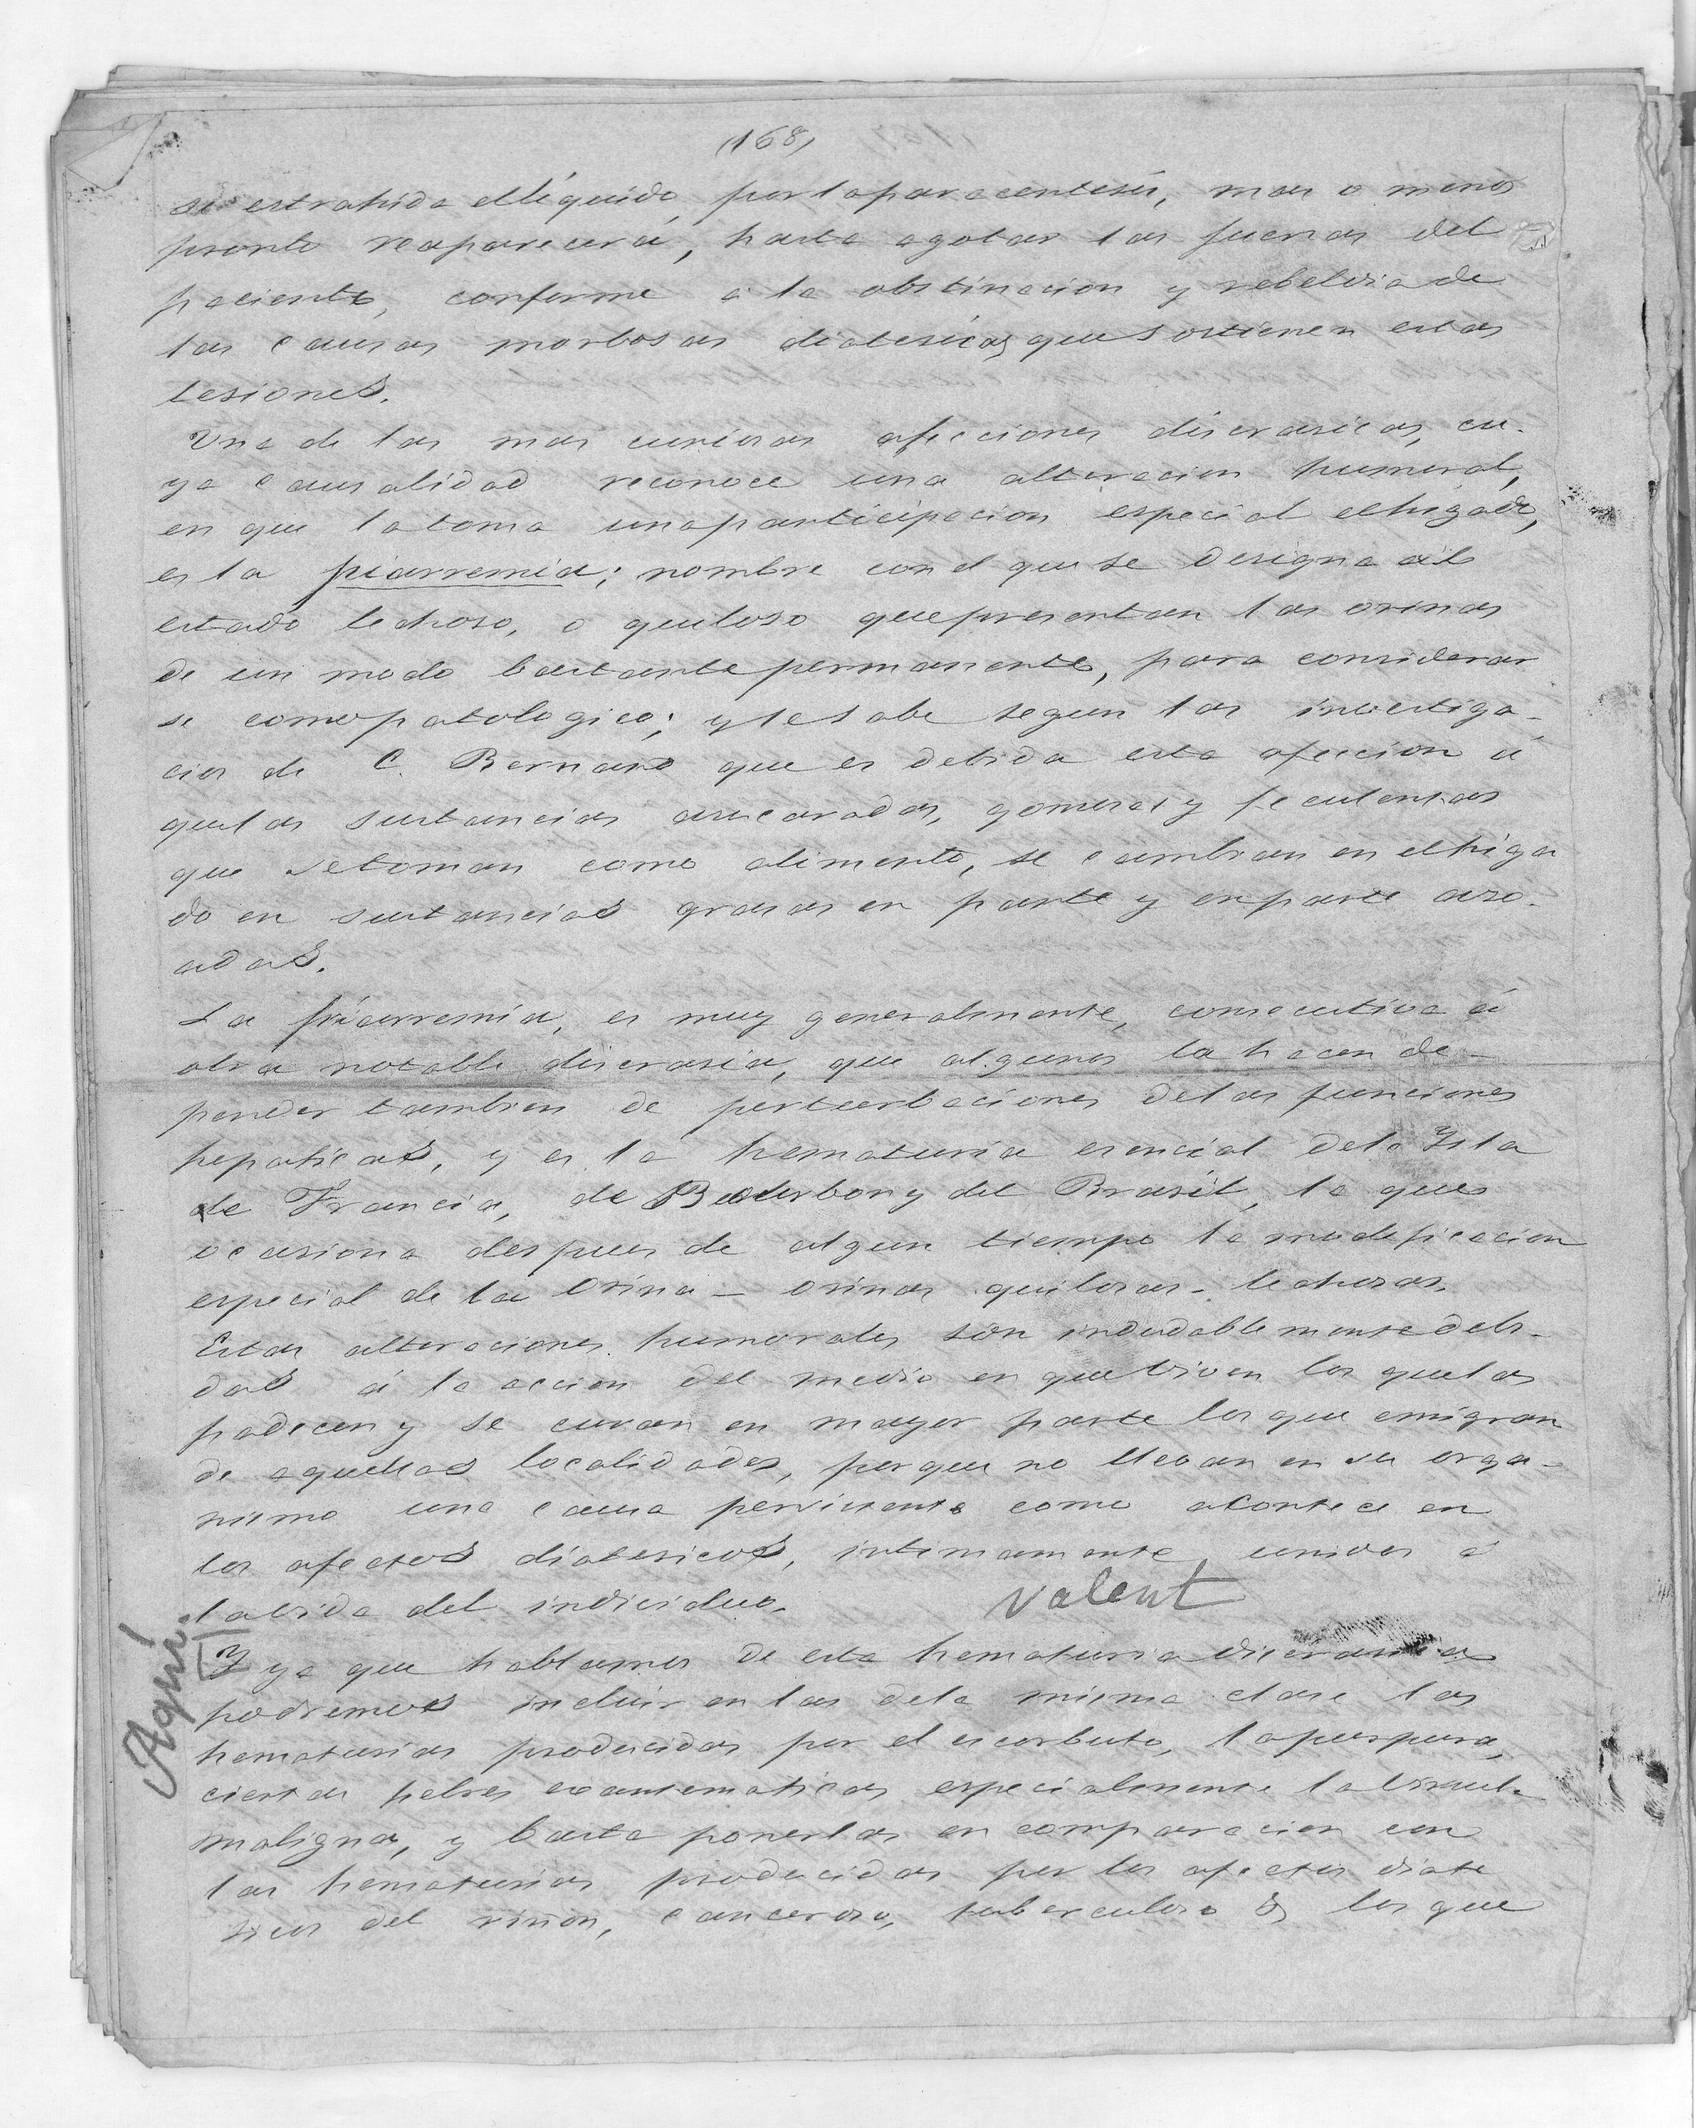 (168)
si estrahido el liquido, por la paracentesis, mas o menos
pronto reaparecerá, hasta agotar las fuerzas del
paciente, conforme a la obstinacion y rebeldia de
las causas morbosas diatesicas que sostienen estas
lesiones.
Una de las mas curiosas afecciones discrasicas, cu-
ya causalidad reconoce una alteracion humoral,
en que la toma una participacion especial el higado,
es la piarremia; nombre con el que se designa al
estado lechoso, o quiloso que presentan las orinas
de un modo bastante permanente, para considerar
se como patologico; y se sabe segun las investiga-
cios de C. Bernard que es debida esta afeccion á
que las sustancias asucaradas, gomosas y feculentas
que se toman como alimento, se cambian en el higa
do en sustancias grasas en parte y en parte azo-
adas.
La piarremia, es muy generalmente, consecutiva á
otra notable discrasia, que algunos la hacen de-
pender tambien de perturbaciones de las funciones
hepaticas, y es la hematuria esencial de la Isla
de Francia, de Bourbon y del Brasil, la que
ocasiona despues de algun tiempo la modificacion
especial de la Orina - orinas quilosas - lechosas.
Estas alteraciones humorales son indudablemente debi-
das á la accion del medio en que viven los que las
padecen y se curan en mayor parte los que emigran
de aquellas localidades, porque no llevan en su orga-
nismo una causa persistente como acontece en
los afectos diatesicos, intimamente unidos á
la vida del individuo.
Valent
Aquí.
Y ya que hablamos de esta hematuria discrasica
podremos incluir en las de la misma clase las
hematurias producidas por el escorbuto, la purpura,
ciertas febres exantematicas especialmente la viruel-
maligna, y basta ponerlas en comparacion con
las hematurias producidas por los afectos diate
sicos del riñon, canceroso, tuberculoso & los que